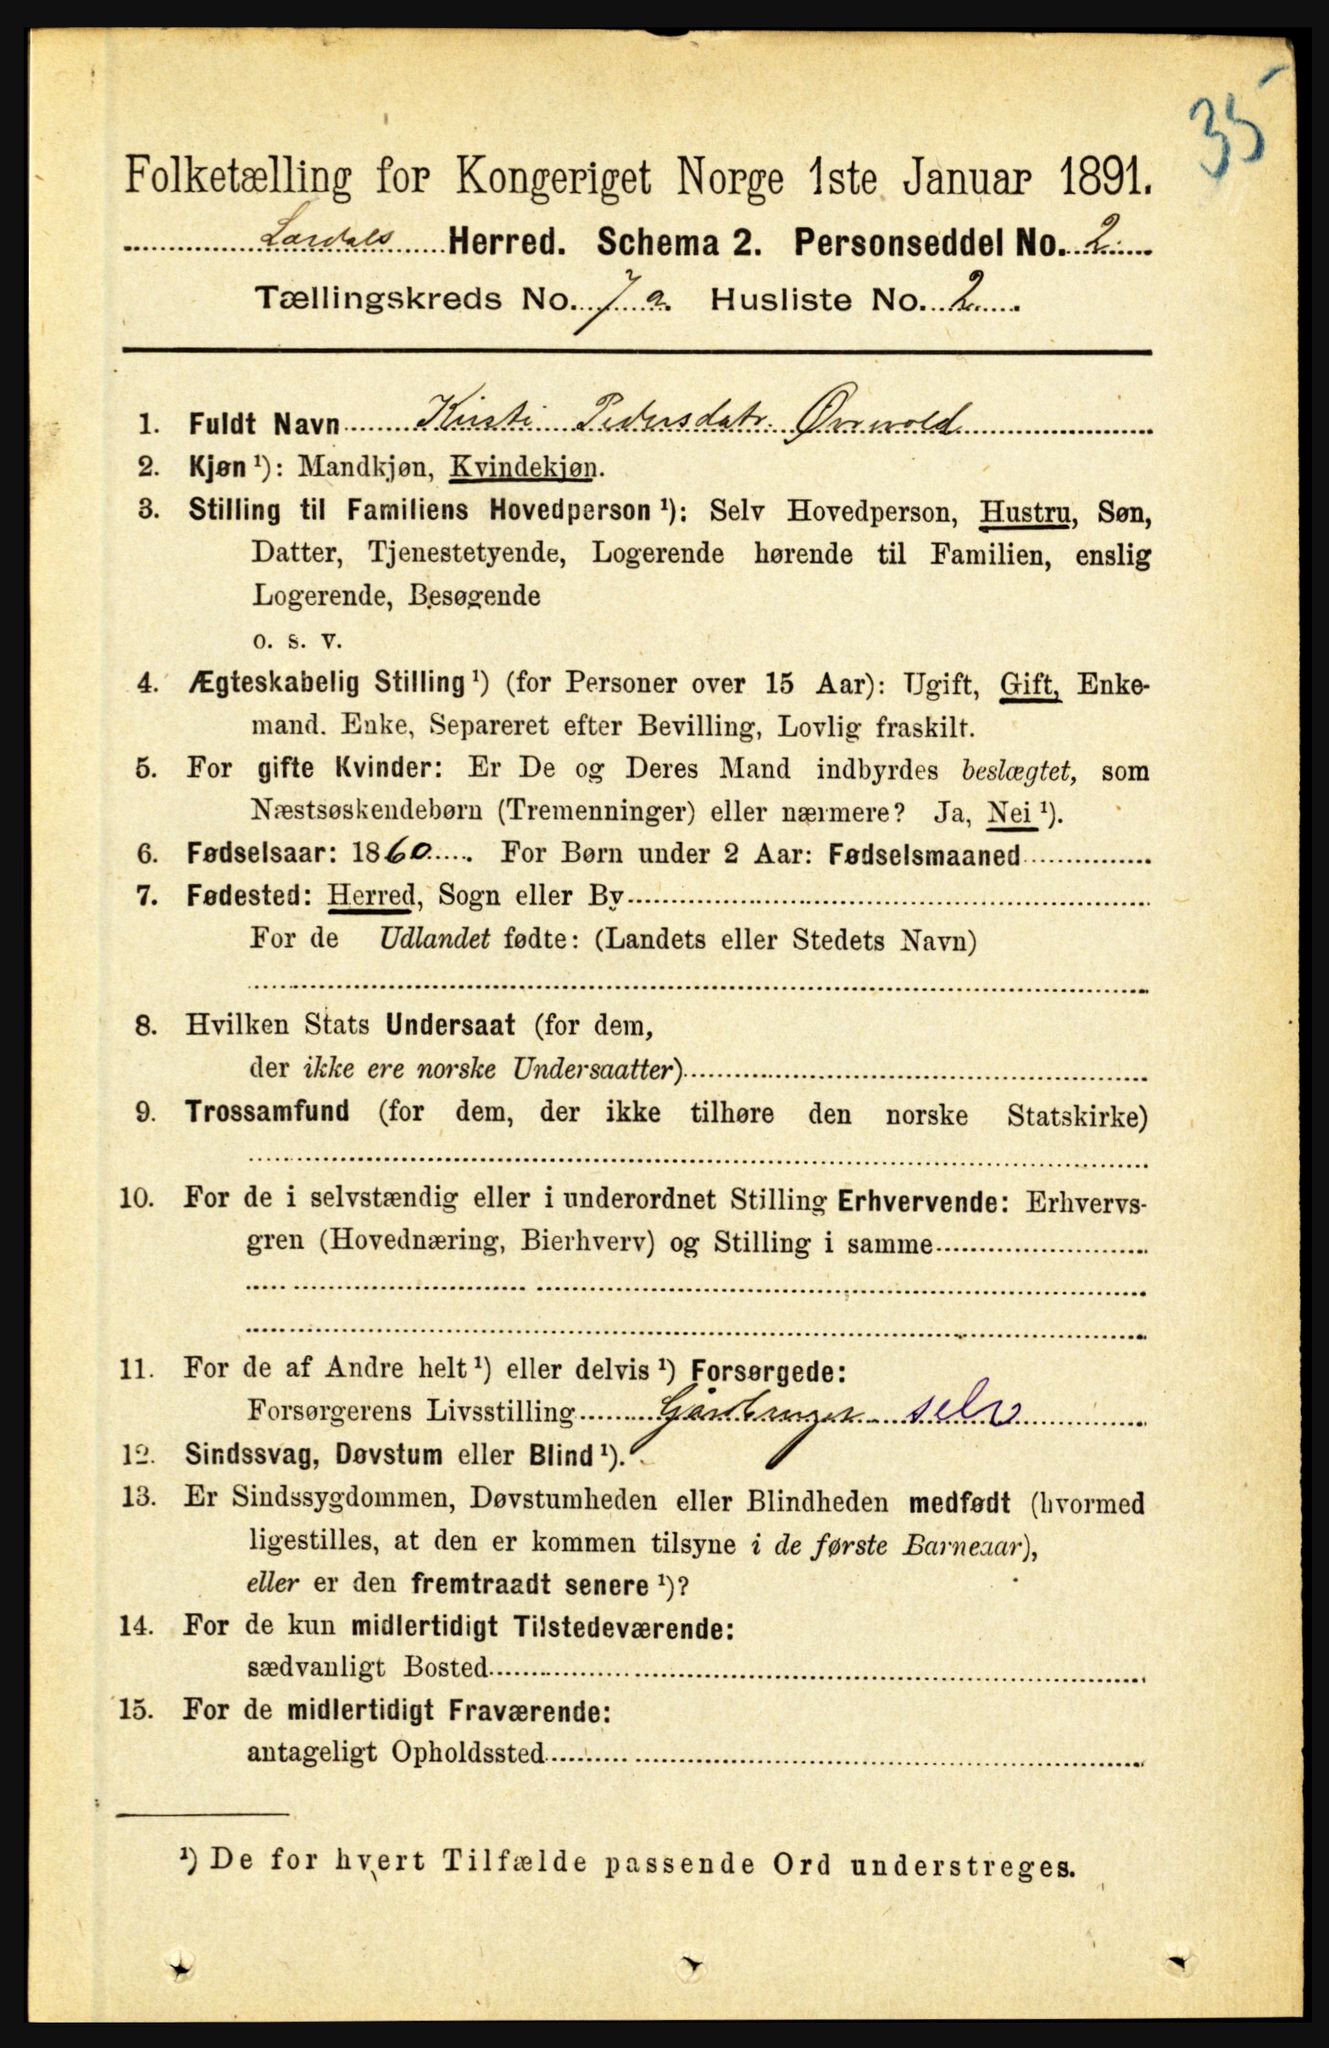 35
Folketælling for Kongeriget Norge 1ste Januar 1891.
Lærdals Herred. Schema 2. Personseddel No. 2
Tællingskreds No. 7 a. Husliste No. 2.
1. Fuldt Navn Kirsti Pedersdatr. Ørevold
2. Kjøn ¹): Mandkjøn, Kvindekjøn.
3. Stilling til Familiens Hovedperson ¹): Selv Hovedperson, Hustru, Søn,
Datter, Tjenestetyende, Logerende hørende til Familien, enslig
Logerende, Besøgende
o. s. v.
4. Ægteskabelig Stilling ¹) (for Personer over 15 Aar): Ugift, Gift, Enke-
mand. Enke, Separeret efter Bevilling, Lovlig fraskilt.
5. For gifte Kvinder: Er De og Deres Mand indbyrdes beslægtet, som
Næstsøskendebørn (Tremenninger) eller nærmere? Ja, Nei ¹).
6. Fødselsaar: 1860. For Børn under 2 Aar: Fødselsmaaned
7. Fødested: Herred, Sogn eller By
For de Udlandet fødte: (Landets eller Stedets Navn)
8. Hvilken Stats Undersaat (for dem,
der ikke ere norske Undersaatter)
9. Trossamfund (for dem, der ikke tilhøre den norske Statskirke)
10. For de i selvstændig eller i underordnet Stilling Erhvervende: Erhvervs-
gren (Hovednæring, Bierhverv) og Stilling i samme
11. For de af Andre helt ¹) eller delvis ¹) Forsørgede:
Forsørgerens Livsstilling Gårdbruger selv
12. Sindssvag, Døvstum eller Blind ¹).
13. Er Sindssygdommen, Døvstumheden eller Blindheden medfødt (hvormed
ligestilles, at den er kommen tilsyne i de første Barneaar),
eller er den fremtraadt senere ¹)?
14. For de kun midlertidigt Tilstedeværende:
sædvanligt Bosted
15. For de midlertidigt Fraværende:
antageligt Opholdssted
¹) De for hvert Tilfælde passende Ord understreges.